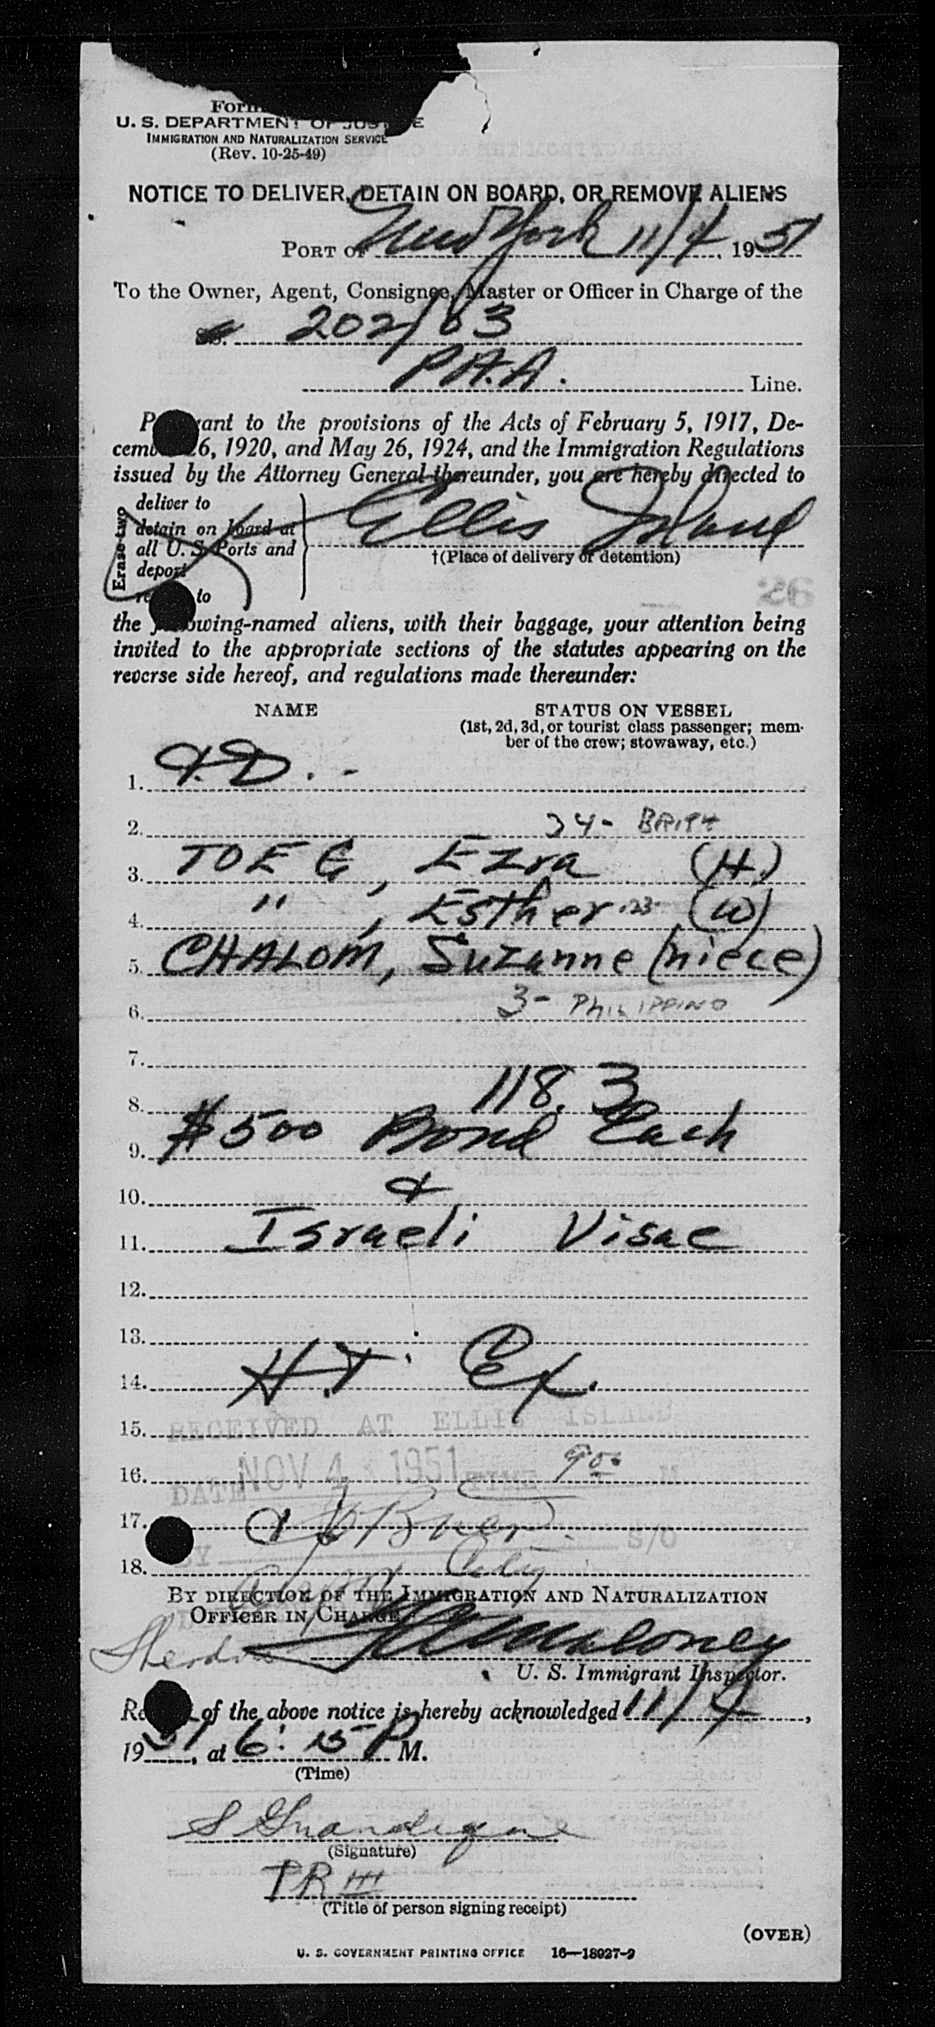 Form
U. S. DEPARTMENT OF JUSTICE
IMMIGRATION AND NATURALIZATION SERVICE
(Rev. 10-25-49)
NOTICE TO DELIVER, DETAIN ON BOARD, OR REMOVE ALIENS
PORT OF New York 11/4, 1951
To the Owner, Agent, Consignee, Master or Officer in Charge of the
202/03
P.A.A. Line.
Pursuant to the provisions of the Acts of February 5, 1917, De-
cember 26, 1920, and May 26, 1924, and the Immigration Regulations
issued by the Attorney General thereunder, you are hereby directed to
Erase two
deliver to
detain on board at
all U. S. Ports and
deport
remove to
Ellis Island
†(Place of delivery or detention)
26
the following-named aliens, with their baggage, your attention being
invited to the appropriate sections of the statutes appearing on the
reverse side hereof, and regulations made thereunder:
NAME STATUS ON VESSEL
(1st, 2d, 3d, or tourist class passenger; mem-
ber of the crew; stowaway, etc.)
1.
2. 34- BRIT
3. TOEG, Ezra (H.)
4. " , Esther 23 (W)
5. CHALOM, Suzanne (niece)
6. 3- PHILIPPINO
7.
8. 118.3
9. $500 Bond Each
10. &
11. Israeli Visae
12.
13.
14. H.T. Ex.
15. RECEIVED AT ELLIS ISLAND
16. DATE NOV 4 1951 TIME 9 00 M
17.
BY S/O
18.
BY DIRECTION OF THE IMMIGRATION AND NATURALIZATION
OFFICER IN CHARGE
Maloney
U. S. Immigrant Inspector.
Receipt of the above notice is hereby acknowledged 11/4,
1951, at 6:15 P M.
(Time)
(Signature)
TR III
(Title of person signing receipt)
(OVER)
U. S. GOVERNMENT PRINTING OFFICE 16—18927-2